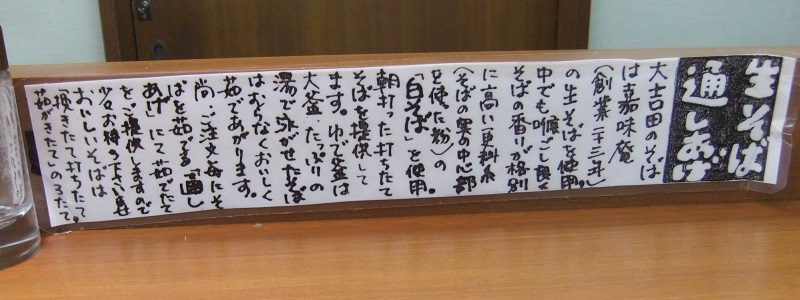 生そば
通しあげ
大吉田のそば
は嘉味庵
(創業二十三年)
の生そばを使用。
中でも喉ごし良く
そばの香りが格別
に高い更科系
(そばの実の中心部
を使た粉)の
「白そば」を使用
朝打った打ちたて
そばを提供して
ます。ゆで釜は
大釜、たっぷりの
湯で泳がせたそば
はむらなくおいしく
茹であがります。
尚、ご注文毎にそ
ばを茹でる「通し
あげ」にて茹でたて
をご提供しますので
少々お待ち下さいませ
おいしいそばは
「挽きたて、打ちたて、
茹がきたて」の3たて。